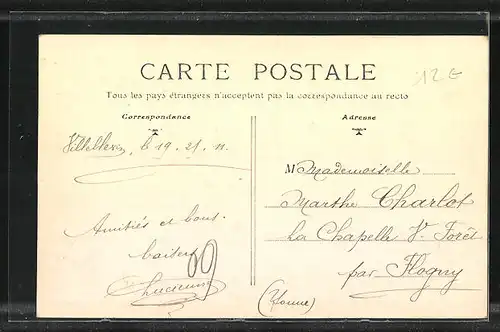 12 €
CARTE POSTALE
Tous les pays étrangers n'acceptent pas la correspondance au recto
Correspondance
Adresse
le 19.
M Mademoiselle
Marthe Charlot
La Chapelle V. Forêt
par Flogny
(Yonne)
Amitiés et bons
baisers
Lucienne